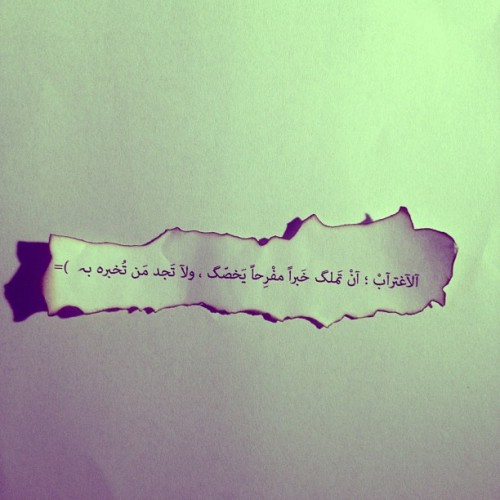 آلآغترآبْ ؛ آنْ تَملگ خَبراً مفْرِحاً يَخصّگ ، ولآ تَجد مَن تُخبره بہ  )=